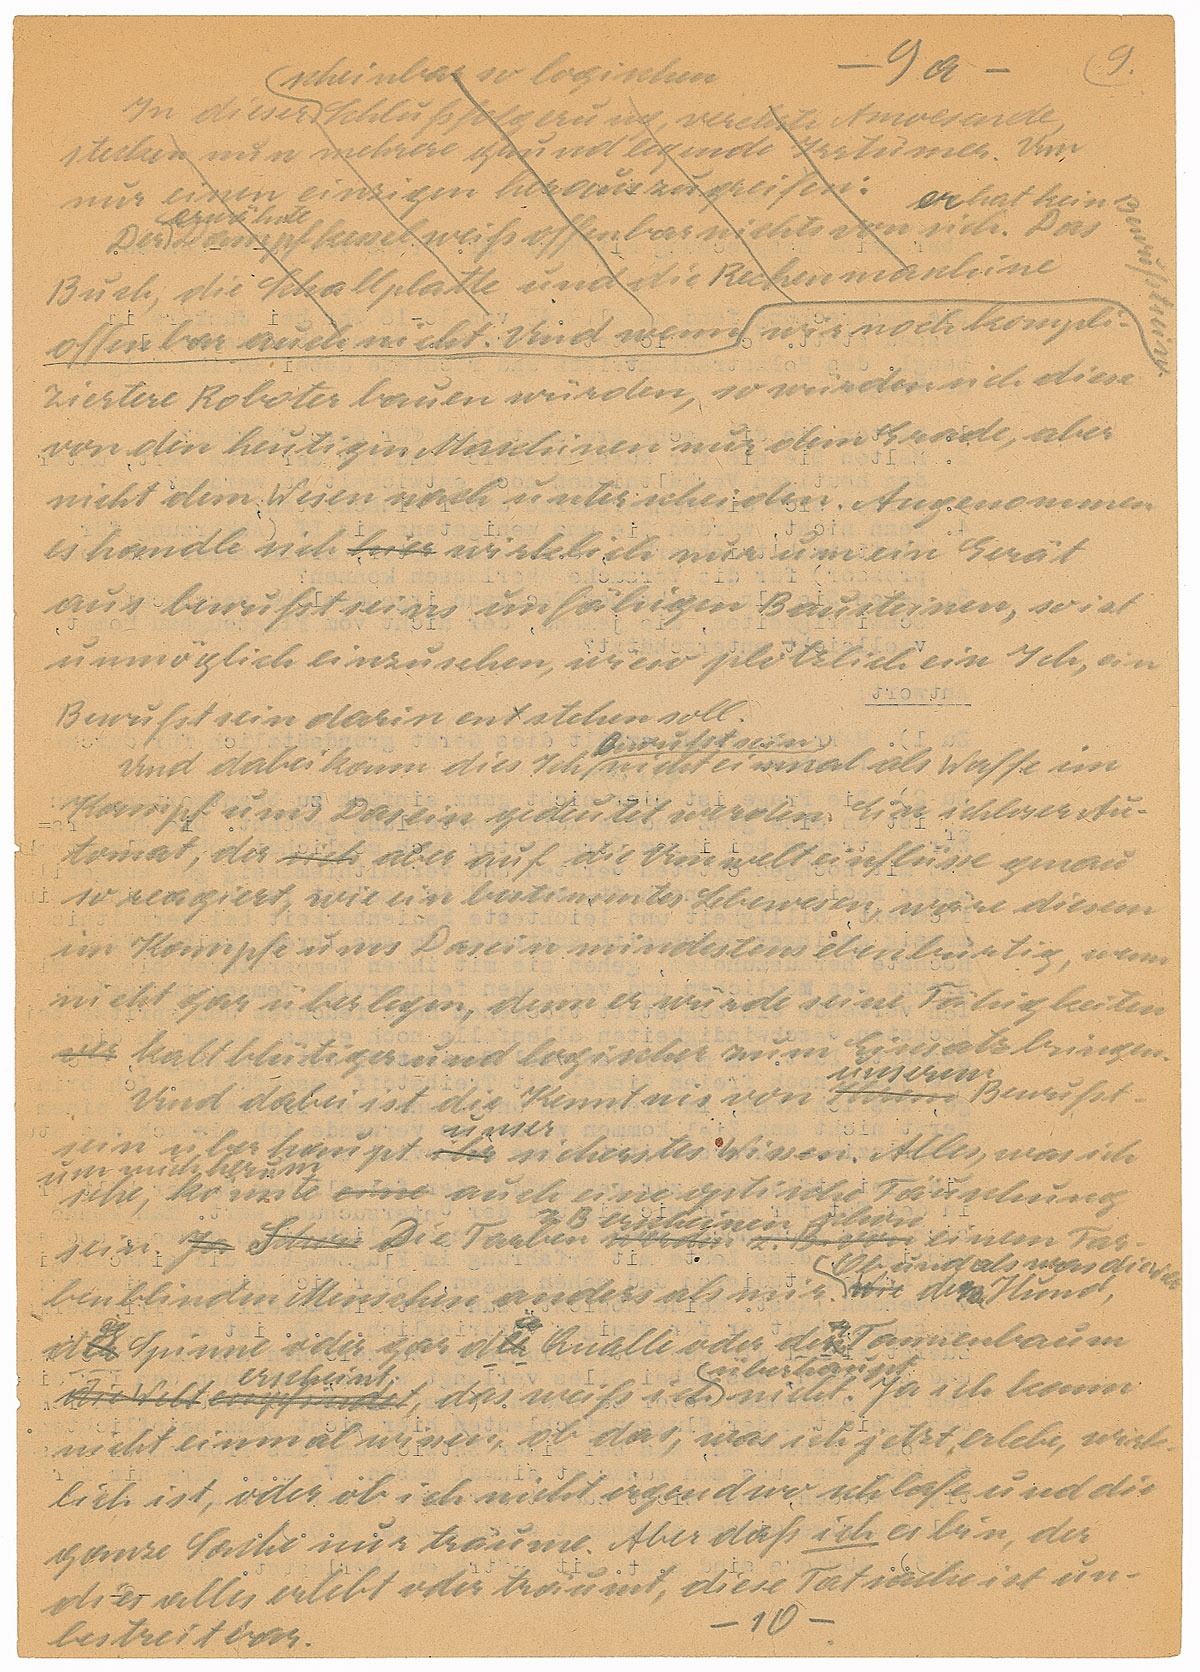 — 9 a —
9.
scheinbar so logischen
In dieser Schlußfolgerung, verehrte Anwesende,
stecken nun mehrere grundlegende Irrtümer. Um
nur einen einzigen herauszugreifen:
er hat kein Bewußtsein
erwähnte
Der Dampfkessel weiß offenbar nichts von sich. Das
Buch, die Schallplatte und die Rechenmaschine
offenbar auch nicht. Und wenn wir noch kompli-
ziertere Roboter bauen würden, so würden sich diese
von den heutigen Maschinen nur dem Grade, aber
nicht dem Wesen nach unterscheiden. Angenommen
es handle sich hier wirklich nur um ein Gerät
aus bewußtseinsunfähigen Bausteinen, so ist
unmöglich einzusehen, wieso plötzlich ein Ich, ein
Bewußtsein darin entstehen soll.
bewußtsein
Und dabei kann dies Ich nicht einmal als Waffe im
Kampf ums Dasein gedeutet werden. Ein ichloser Au-
tomat, der sich aber auf die Umwelteinflüsse genau
so reagiert, wie ein bestimmtes Lebewesen, wäre diesem
im Kampfe ums Dasein mindestens ebenbürtig, wenn
nicht gar überlegen, denn er würde seine Fähigkeiten
kaltblütiger und logischer zum Einsatz bringen.
unserem
Und dabei ist die Kenntnis von Bewußt-
unser
sein überhaupt sicherstes Wissen. Alles, was ich
um mich herum
sehe, könnte eine auch eine optische Täuschung
z B erscheinen schon
sein. Ja Schon Die Farben werden z. B. einem Far-
Ob und als was die Welt
benblinden Menschen anders als mir. Wie dem Hund,
der Spinne oder gar der Qualle oder dem Tannenbaum
erscheint überhaupt
die Welt empfindet, das weiß ich nicht. Ja ich kann
nicht einmal wissen, ob das, was ich jetzt erlebe, wirk-
lich ist, oder ob ich nicht irgendwo schlafe und die
ganze Sache nur träume. Aber daß ich es bin, der
dies alles erlebt oder träumt, diese Tatsache ist un-
bestreitbar.
— 10 —